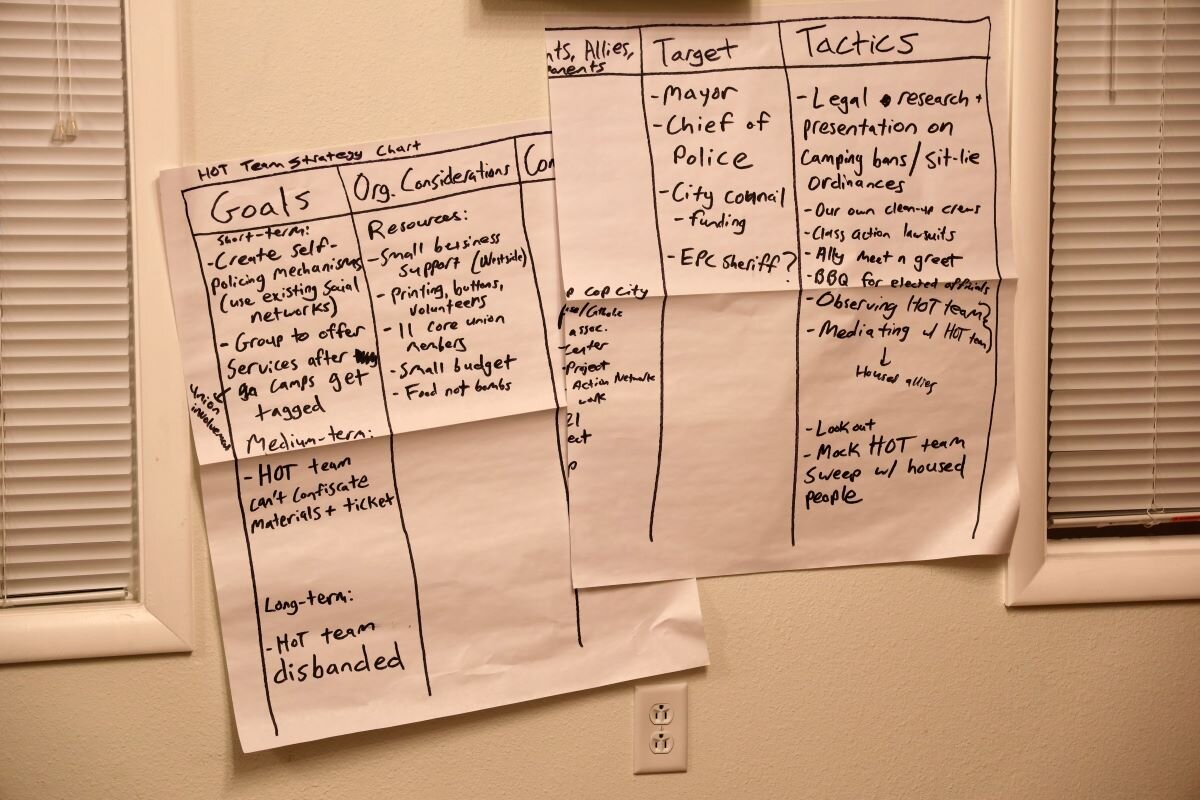 HOT Team Strategy Chart
Goals
Short-term:
- Create self-
policing mechanisms
(use existing social
networks)
- Group to offer
services after
camps get
tagged
Union
involvement
Medium-term:
- HOT team
can't confiscate
materials + ticket
Long-term:
- HOT team
disbanded
Org. Considerations
Resources:
- Small business
support (Westside)
- Printing, buttons,
volunteers
- 11 core union
members
- Small budget
- Food not bombs
Con
nts, Allies,
onents
p cop city
assoc.
Center
-Project
Action Network
work
21
ect
p
Target
- Mayor
- Chief of
Police
- City council
- funding
- EPC Sheriff?
Tactics
- Legal research +
presentation on
Camping bans/Sit-lie
Ordinances
- Our own clean-up crews
- Class action lawsuits
- Ally meet n greet
- BBQ for elected officials
- Observing HOT team?
- Mediating w/ HOT team)
↓
Housed allies
- Lookout
- Mock HOT team
Sweep w/ housed
people